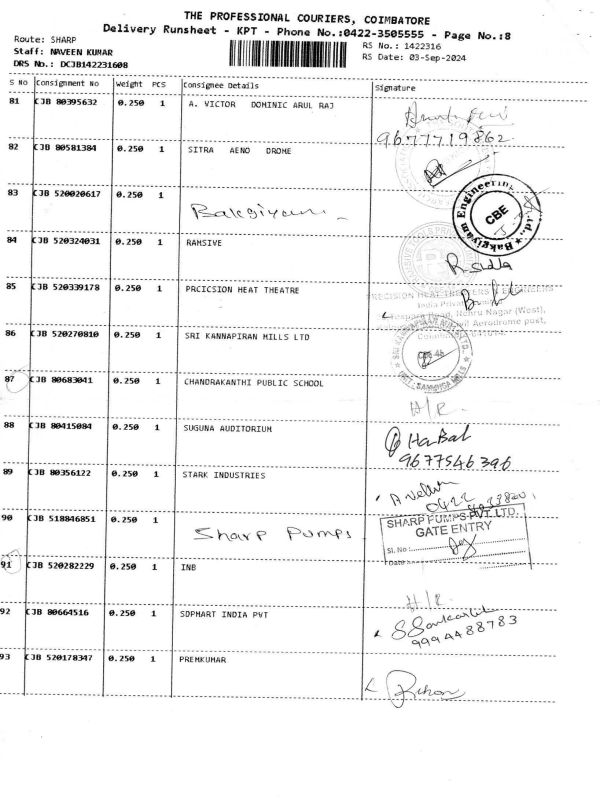 THE PROFESSIONAL COURIERS, COIMBATORE
Delivery Runsheet - KPT - Phone No.:0422-3505555 - Page No.:8
Route: SHARP
RS No. : 1422316
Staff: NAVEEN KUMAR
RS Date: 03-Sep-2024
DRS No.: DCJB142231608
S No Consignment No Weight PCS Consignee Details Signature
81 CJB 80395632 0.250 1 A. VICTOR DOMINIC ARUL RAJ
9677719862
82 CJB 80581384 0.250 1 SITRA AENO DROME
83 CJB 520020617 0.250 1 Bakgiyam
Bakgiyam Engineering
CBE
84 CJB 520324031 0.250 1 RAHSIVE
85 CJB 520339178 0.250 1 PRCICSION HEAT THEATRE
PRECISION HEAT TREATERS & ENGINEERS
India Private
Nehru Nagar (West),
Civil Aerodrome post,
86 CJB 520270810 0.250 1 SRI KANNAPIRAN HILLS LTD
SRI KANNAPIRAN MILLS LTD.
87 CJB 80683041 0.250 1 CHANDRAKANTHI PUBLIC SCHOOL
H/R.
88 CJB 80415084 0.250 1 SUGUNA AUDITORIUM
9677546396
89 CJB 80356122 0.250 1 STARK INDUSTRIES
0422
90 CJB 518846851 0.250 1 Sharp Pumps
SHARP PUMPS PVT. LTD.
GATE ENTRY
Sl. No :
Date
91 CJB 520282229 0.250 1 INB
H/R.
92 CJB 80664516 0.250 1 SDPHART INDIA PVT
9994488783
93 CJB 520178347 0.250 1 PREMKUMAR